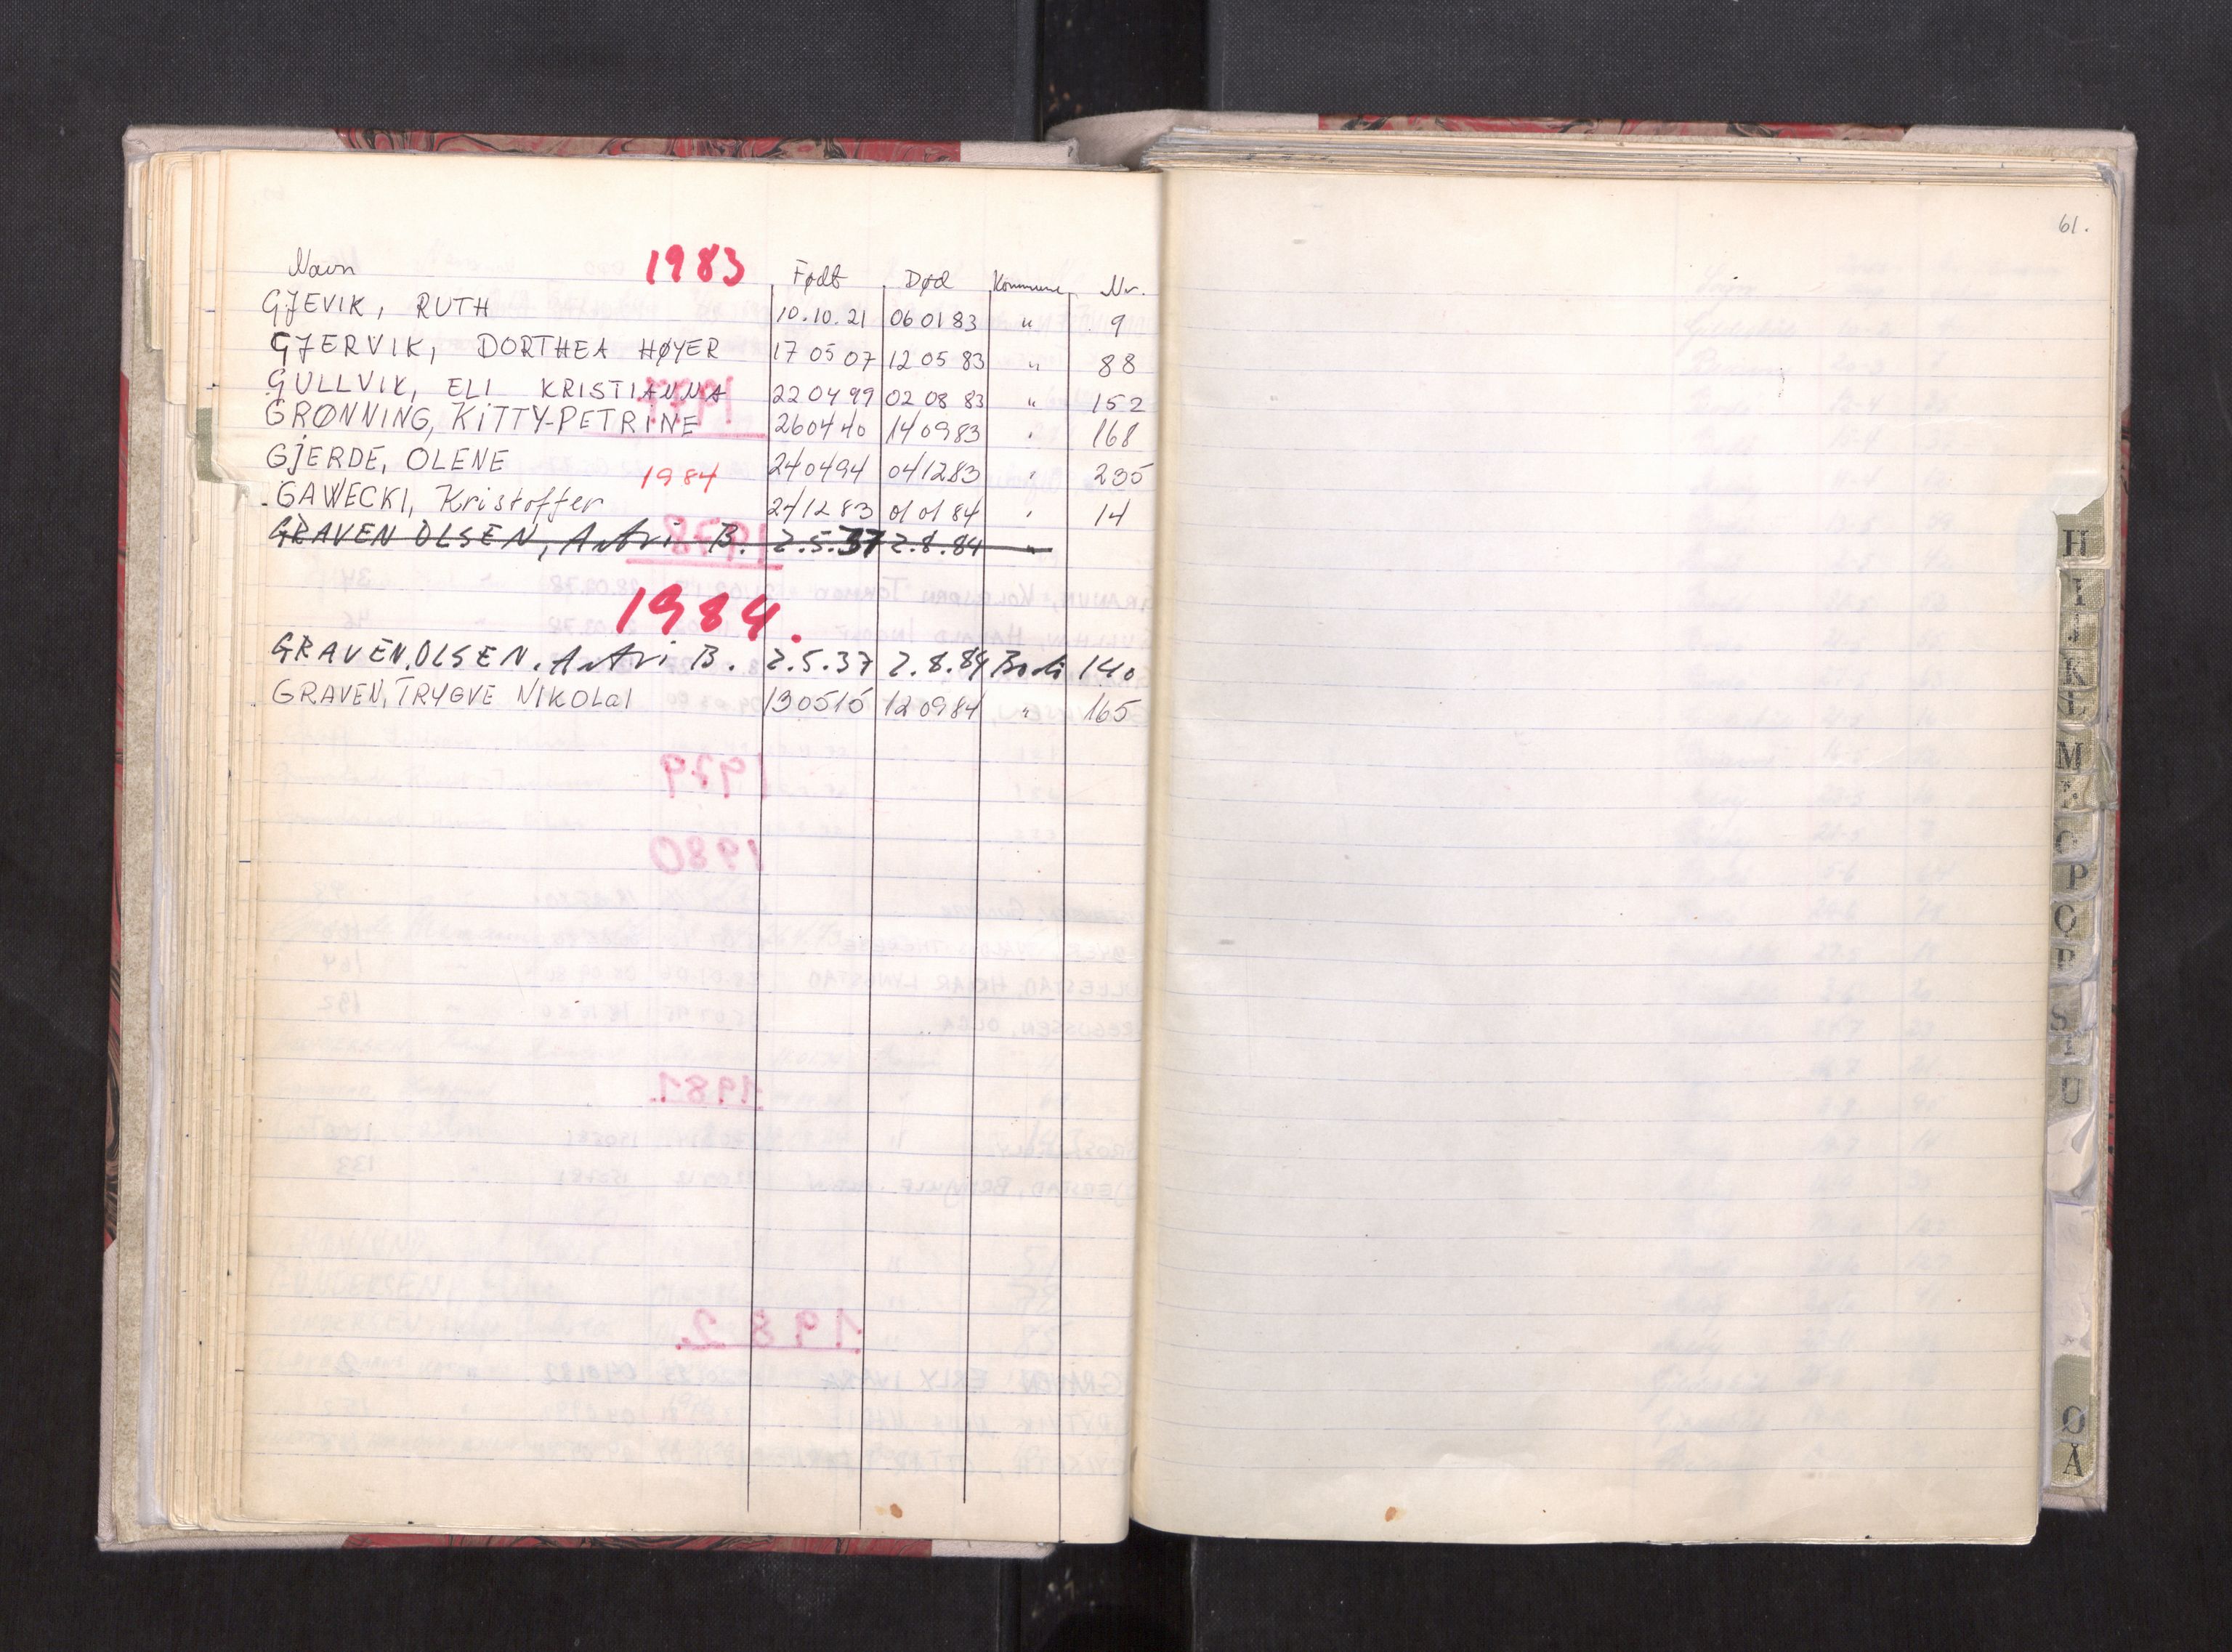 61.
Navn 1983 Født Død Kommune Nr.
GJEVIK, RUTH 10.10.21 06 01 83 " 9
GJERVIK, DORTHEA HØYER 17 05 07 12 05 83 " 88
GULLVIK, ELI KRISTIANNA 22 04 99 02 08 83 " 152
GRØNNING, KITTY-PETRINE 260440 140983 " 168
GJERDE, OLENE 240494 041283 " 235
1984
GAWECKI, Kristoffer 241283 010184 " 14
GRAVEN OLSEN, B. 2.5.37 2.8.84 "
1984.
GRAVEN.OLSEN. B. 2.5.37 2.8.84 Bodø 140
GRAVEN, TRYGVE NIKOLAI 130515 120984 " 165
H
I
K
L
M
O
P
Q
R
S
T
U
Ø
Å